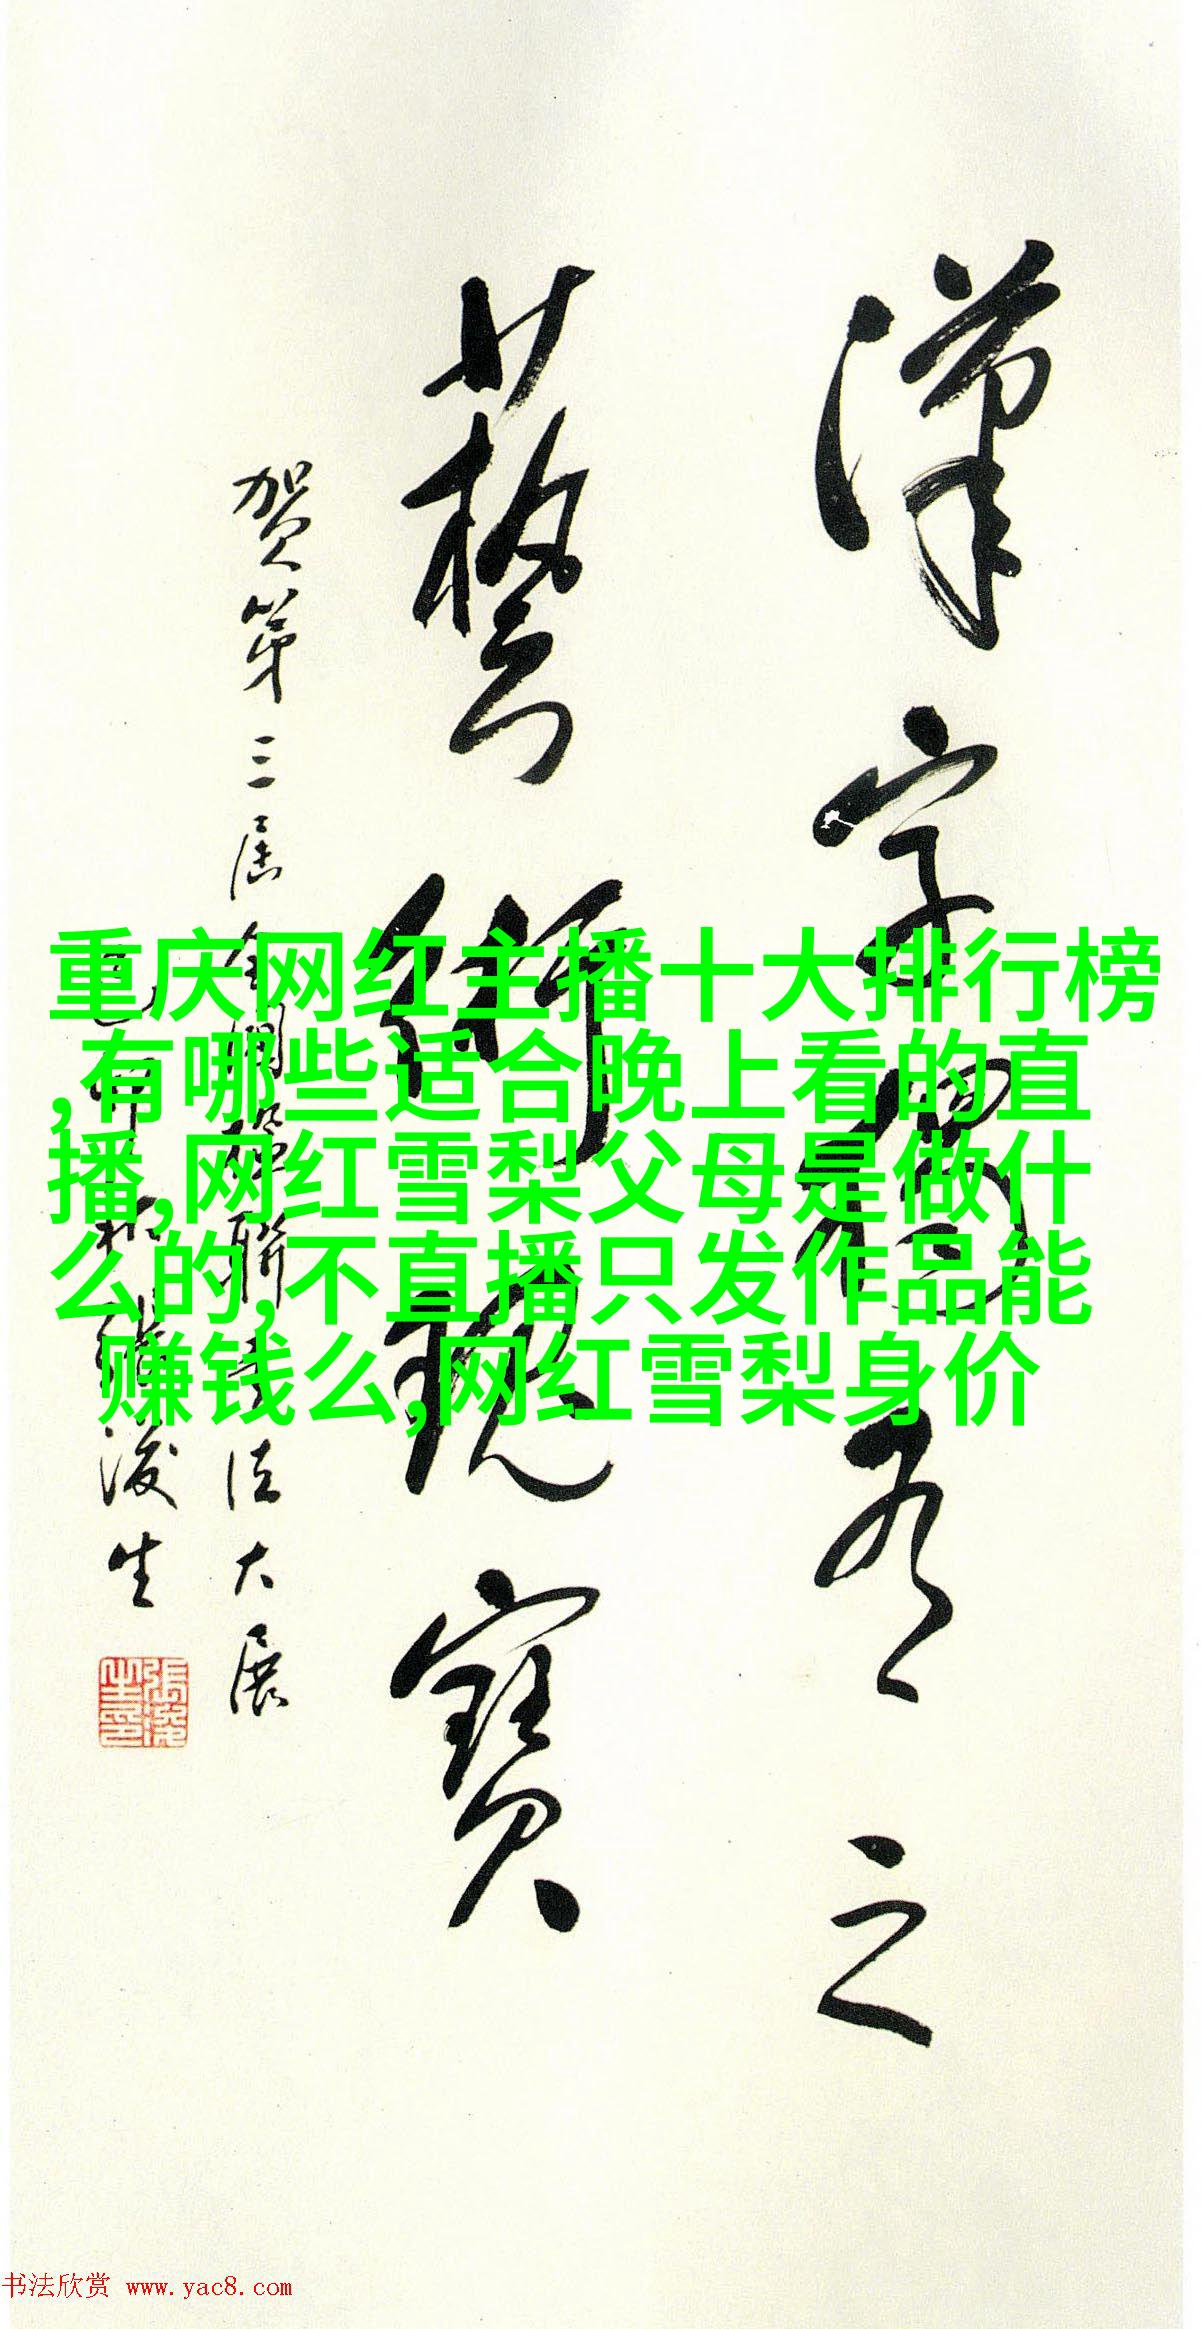 漢字傳有之
藝術瑰寶
贺第三届
法大展
浚生
重庆网红主播十大排行榜
,有哪些适合晚上看的直
播,网红雪梨父母是做什
么的,不直播只发作品能
赚钱么,网红雪梨身价
书法欣赏 www.yac8.com